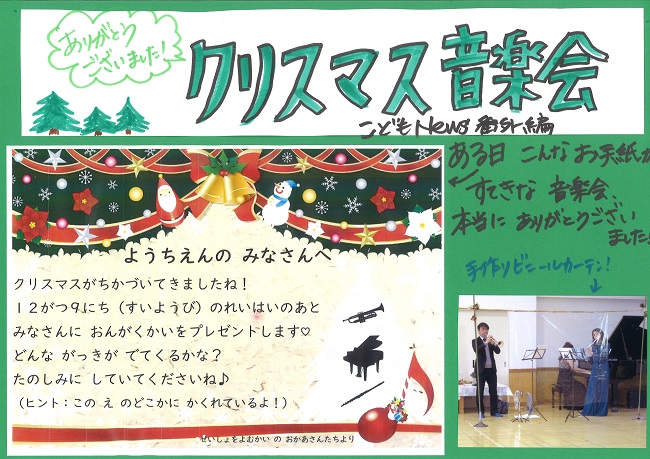 ありがとう
ございました!
クリスマス音楽会
こどもNews番外編
ある日 こんな お手紙が
すてきな 音楽会、
本当に ありがとうござい
ました!
手作りビニールカーテン!
ようちえんの みなさんへ
クリスマスがちかづいてきましたね!
12がつ9にち（すいようび）のれいはいのあと
みなさんに おんがくかいをプレゼントします♡
どんな がっきが でてくるかな?
たのしみに していてくださいね♪
（ヒント:この え のどこかに かくれているよ!）
せいしょをよむかい の おかあさんたちより